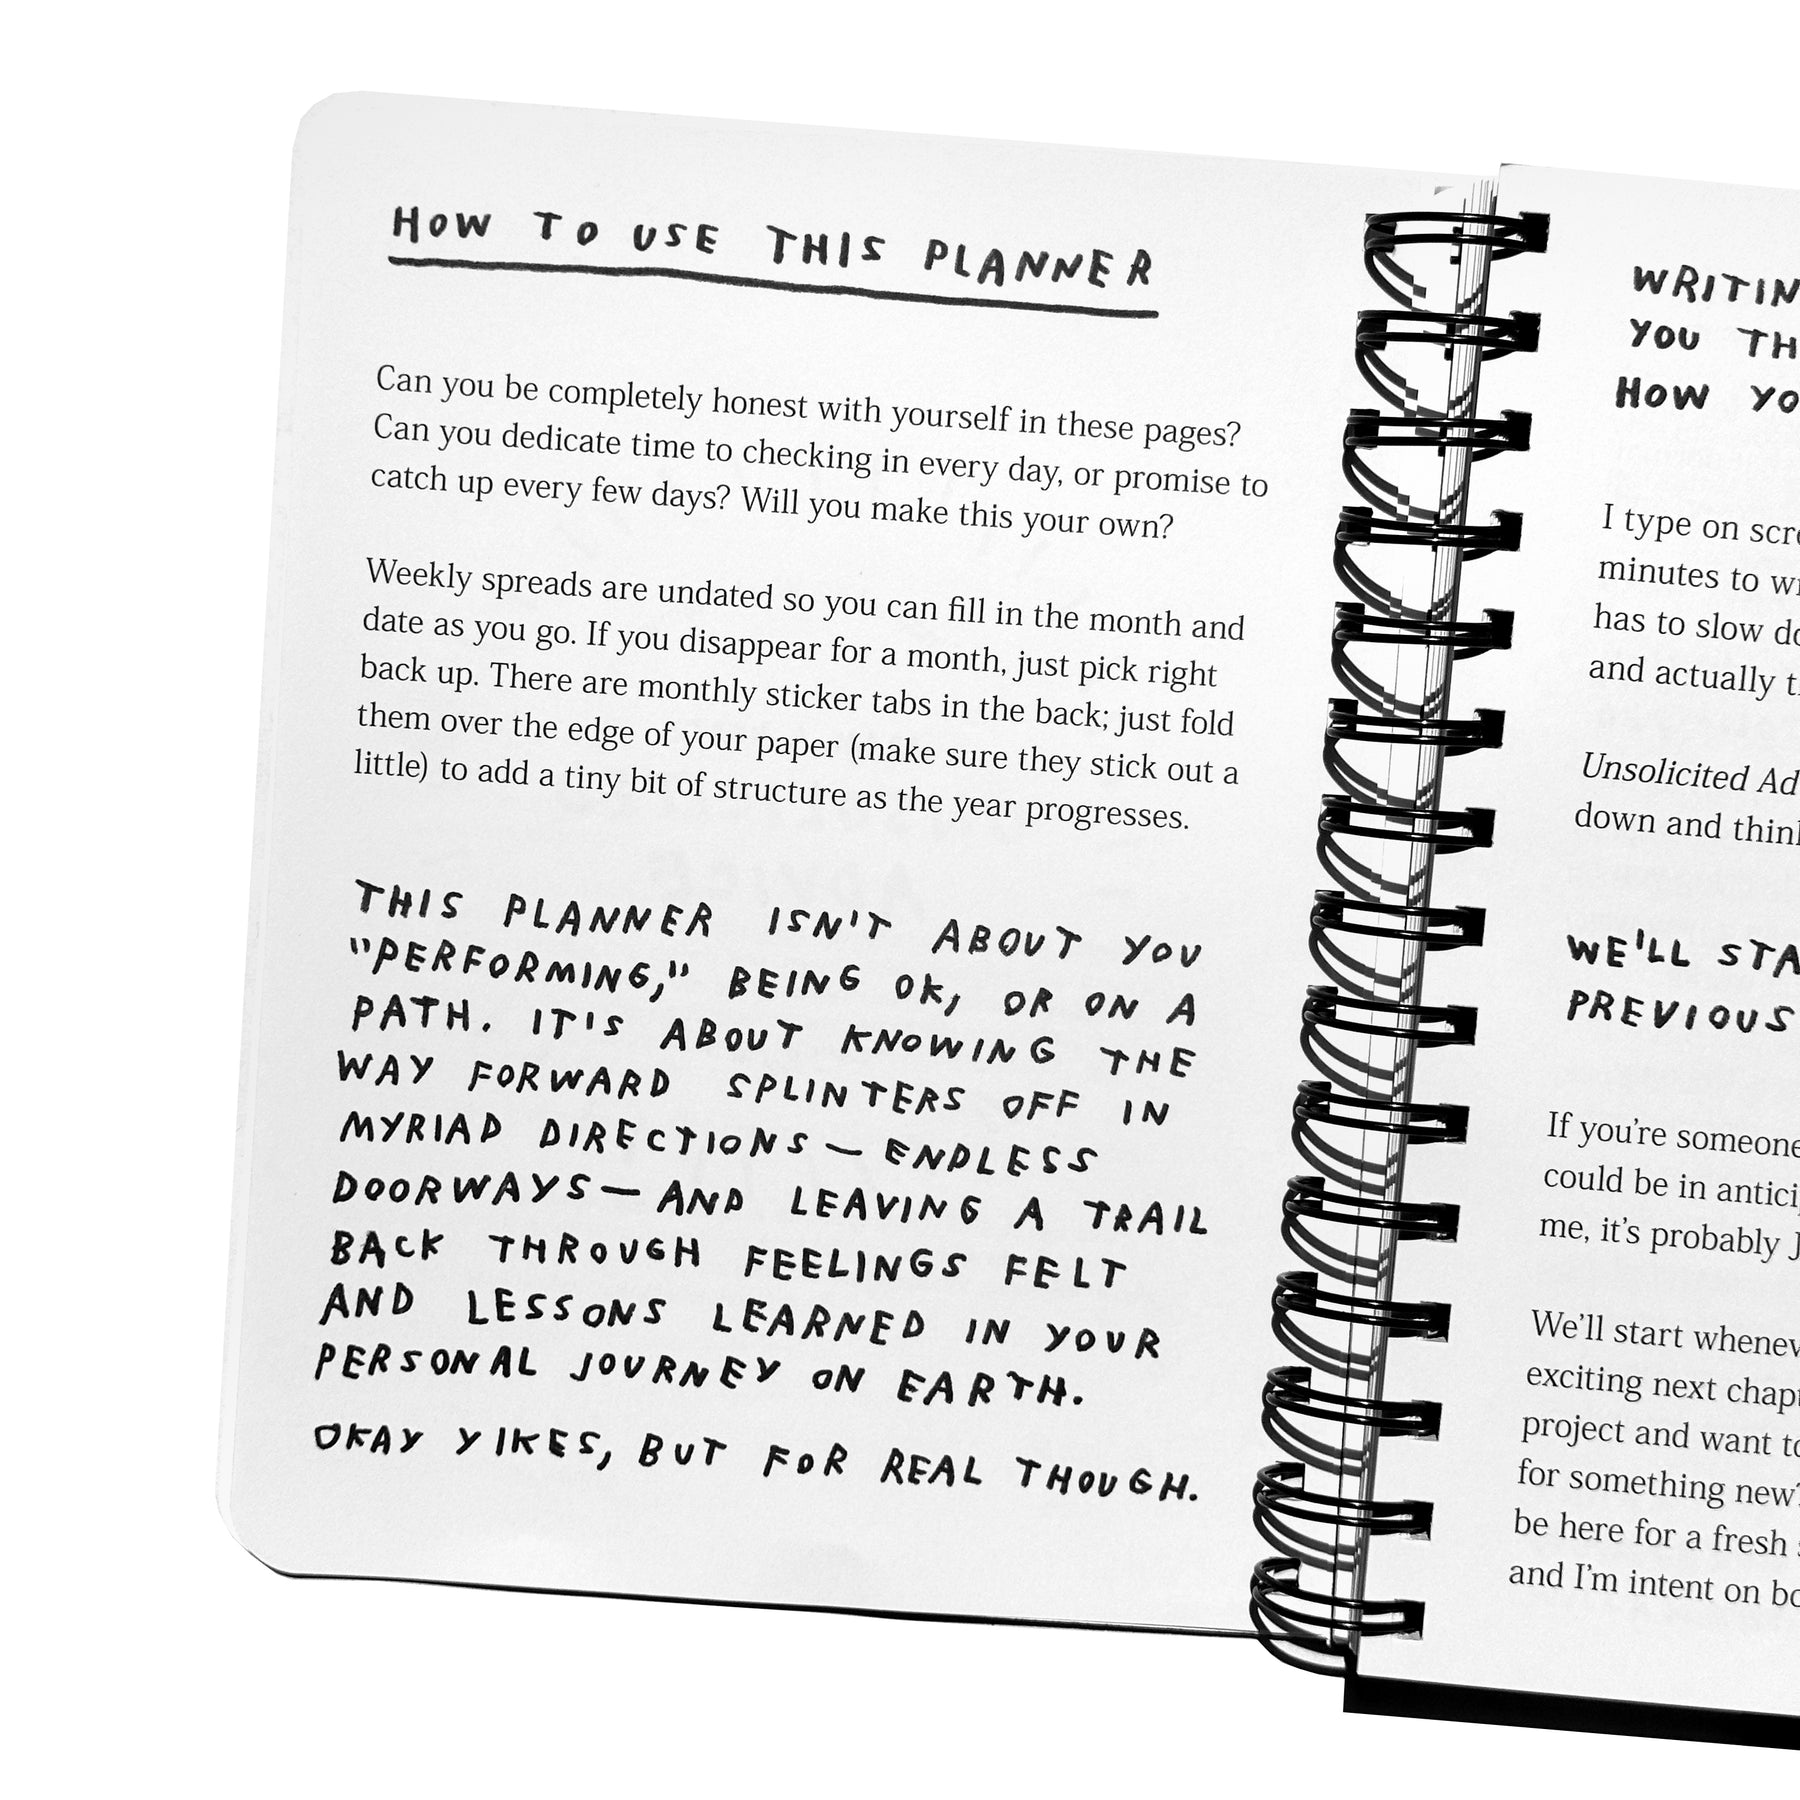 HOW TO USE THIS PLANNER
Can you be completely honest with yourself in these pages?
Can you dedicate time to checking in every day, or promise to
catch up every few days? Will you make this your own?
Weekly spreads are undated so you can fill in the month and
date as you go. If you disappear for a month, just pick right
back up. There are monthly sticker tabs in the back; just fold
them over the edge of your paper (make sure they stick out a
little) to add a tiny bit of structure as the year progresses.
THIS PLANNER ISN'T ABOUT YOU
"PERFORMING," BEING OK, OR ON A
PATH. IT'S ABOUT KNOWING THE
WAY FORWARD SPLINTERS OFF IN
MYRIAD DIRECTIONS — ENDLESS
DOORWAYS — AND LEAVING A TRAIL
BACK THROUGH FEELINGS FELT
AND LESSONS LEARNED IN YOUR
PERSONAL JOURNEY ON EARTH.
OKAY YIKES, BUT FOR REAL THOUGH.
WRITIN
YOU TH
HOW YO
I type on scre
minutes to w
has to slow do
and actually t
Unsolicited Ad
down and thin
WE'LL STA
PREVIOUS
If you're someone
could be in antici
me, it's probably J
We'll start whenev
exciting next chap
project and want to
for something new?
be here for a fresh
and I'm intent on bo